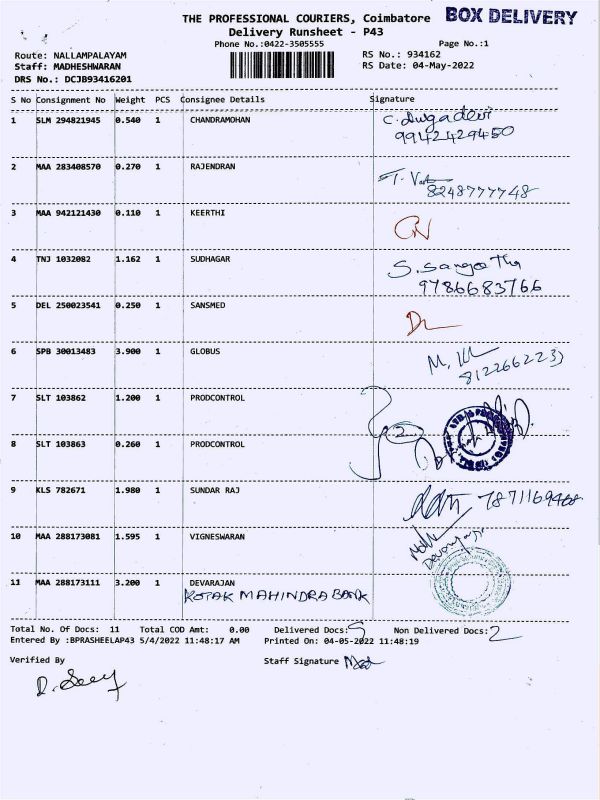 THE PROFESSIONAL COURIERS, Coimbatore BOX DELIVERY
Delivery Runsheet - P43
Phone No.:0422-3505555 Page No.:1
Route: NALLAMPALAYAM RS No.: 934162
Staff: MADHESHWARAN RS Date: 04-May-2022
DRS No.: DCJB93416201
S No Consignment No Weight PCS Consignee Details Signature
1 SLM 294821945 0.540 1 CHANDRAMOHAN C. Durgadevi
99142429450
2 MAA 283408570 0.270 1 RAJENDRAN
8248777748
3 MAA 942121430 0.110 1 KEERTHI
4 TNJ 1032082 1.162 1 SUDHAGAR S. Sangeetha
9786683766
5 DEL 250023541 0.250 1 SANSMED
6 SPB 30013483 3.900 1 GLOBUS
8122662233
7 SLT 103862 1.200 1 PRODCONTROL
8 SLT 103863 0.260 1 PRODCONTROL
9 KLS 782671 1.980 1 SUNDAR RAJ 7871169468
10 MAA 288173081 1.595 1 VIGNESWARAN
11 MAA 288173111 3.200 1 DEVARAJAN
KOTAK MAHINDRA BANK
Total No. Of Docs: 11 Total COD Amt: 0.00 Delivered Docs: 9 Non Delivered Docs: 2
Entered By :BPRASHEELAP43 5/4/2022 11:48:17 AM Printed On: 04-05-2022 11:48:19
Verified By Staff Signature